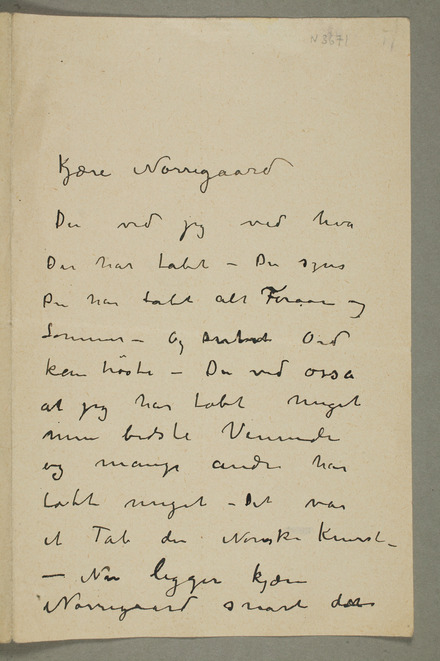 N 3671
Kjære Nørregaard
Du ved jeg ved hva
Du har tabt – Du synes
Du har tabt alt Foraar og
Sommer – Og intet Ord
kan trøste – Du ved ossa
at jeg har tabt meget
min bedste Veninde
og mange andre har
tabt meget – Det var
et Tab den Norske Kunst –
– Nu ligger kjære
Nørregaard snart det